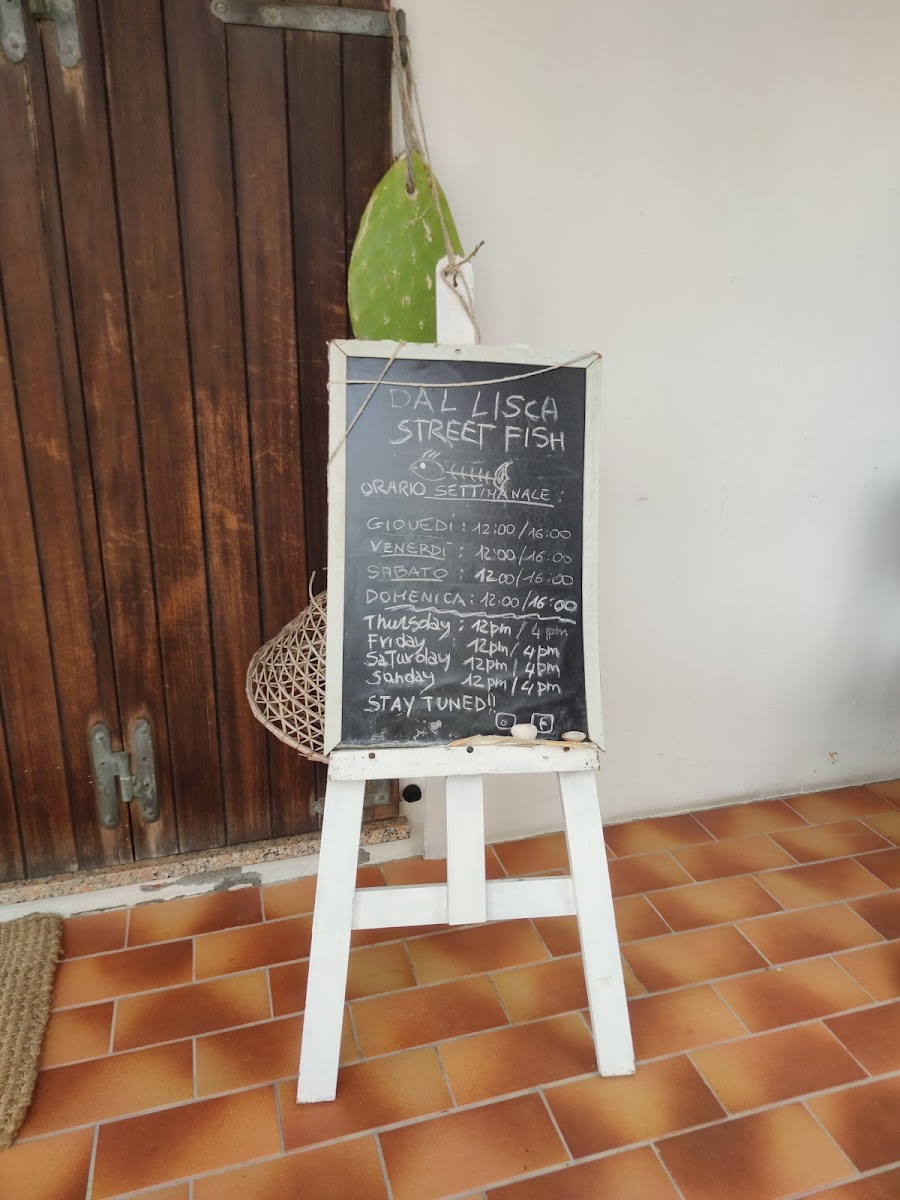 DAL LISCA
STREET FISH
ORARIO SETTIMANALE:
GIOVEDÌ: 12:00/16:00
VENERDÌ: 12:00/16:00
SABATO: 1200/16:00
DOMENICA: 12:00/16:00
Thursday: 12pm/4pm
Friday: 12pm/4pm
SaTurday 12pm/4pm
Sunday 12pm/4pm
STAY TUNED!!